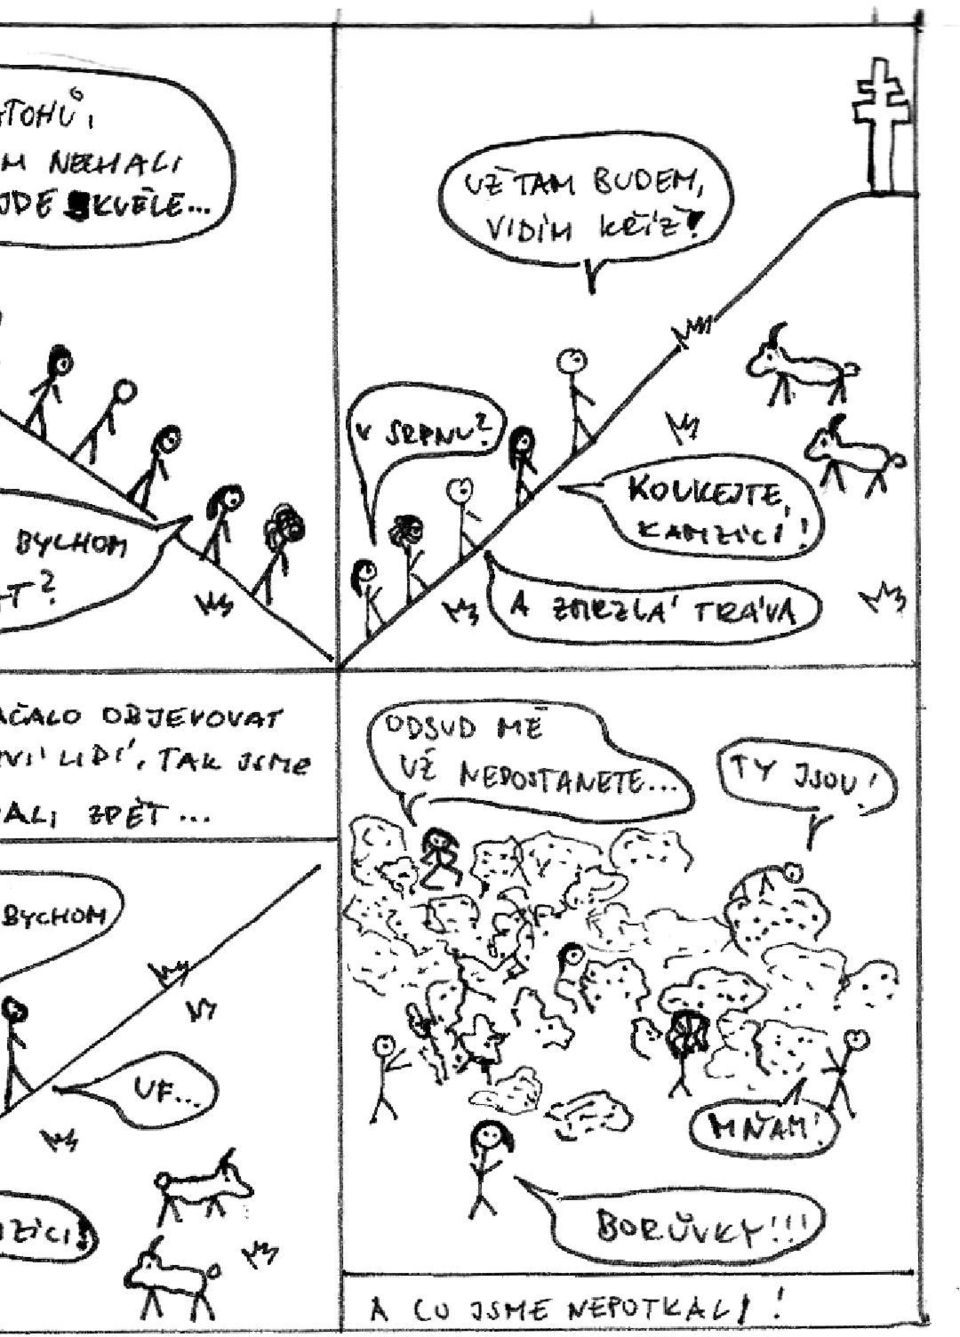 ATOHŮ,
M NECHALI
JDE SKVĚLE...
BYCHOM
T?
UŽ TAM BUDEM,
VIDÍM KŘÍŽ!
V SRPNU?
KOUKEJTE,
KAMZÍCI!
A ZMRZLÁ TRÁVA
AČALO OBJEVOVAT
VÍ LIDÍ, TAK JSME
ALI ZPĚT...
BYCHOM
UF...
ZÍCI!
ODSUD MĚ
UŽ NEDOSTANETE...
TY JSOU!
MŇAM!
BORŮVKY!!!
A CO JSME NEPOTKALI!